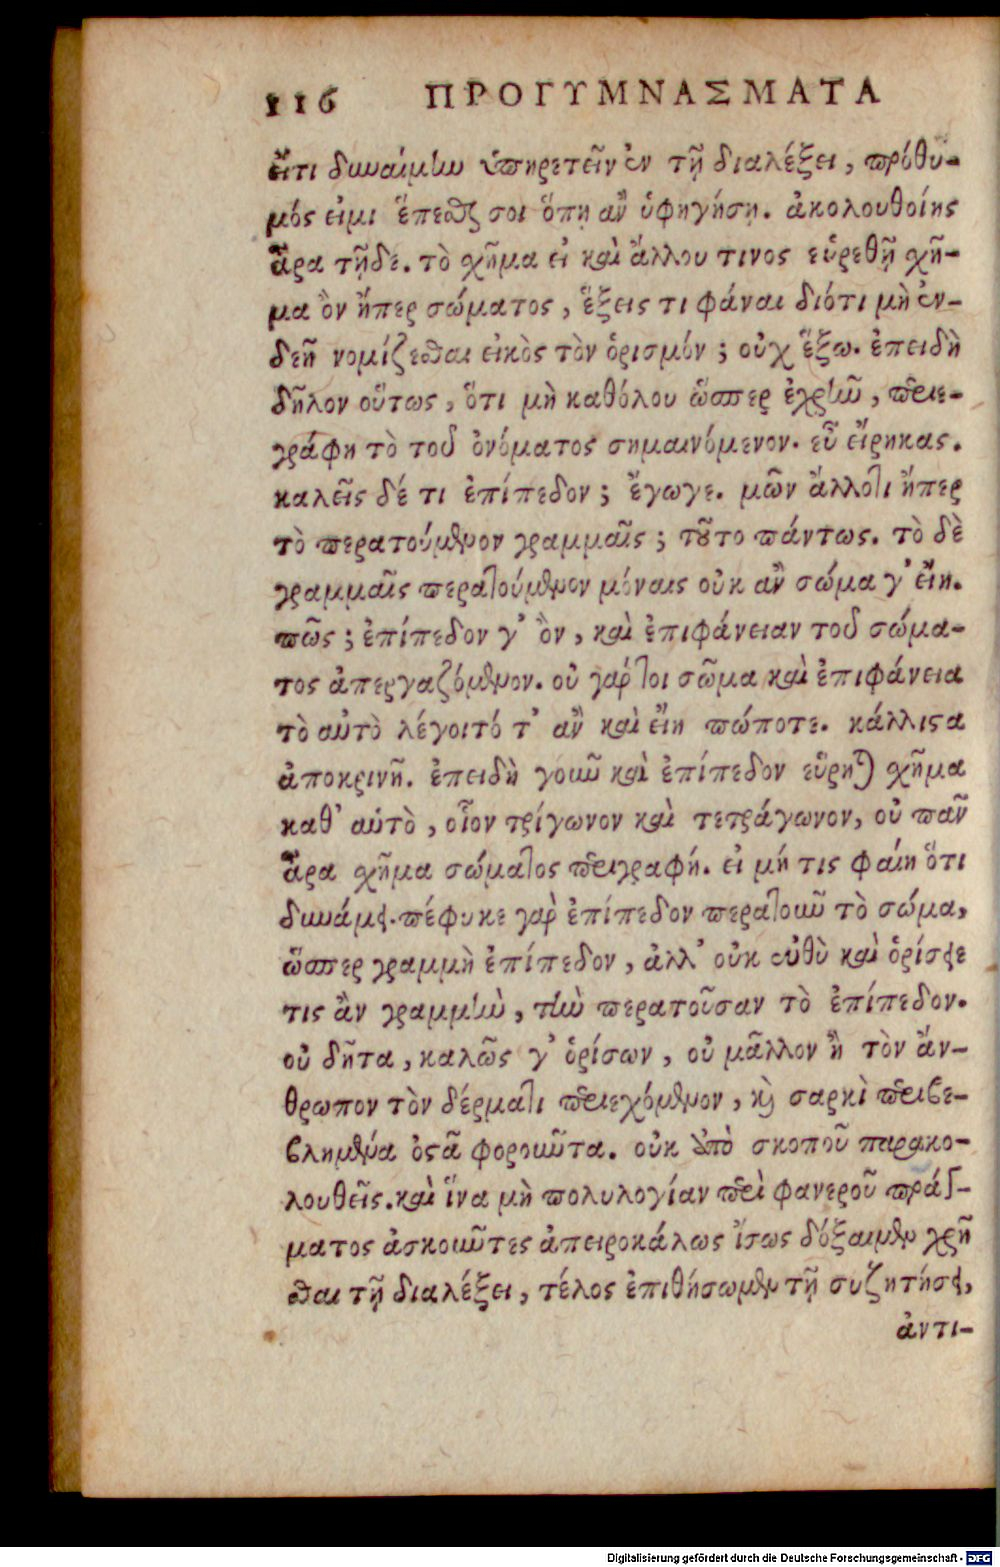 116 ΠΡΟΓΥΜΝΑΣΜΑΤΑ
εἴτι δυναίμην ὑπηρετεῖν ἐν τῇ διαλέξει, πρόθυ-
μός εἰμι ἕπεσθαί σοι ὅπη ἂν ὑφηγήση. ἀκολουθοίης
ἄρα τῇδε. τὸ χῆμα εἰ καὶ ἄλλου τινος εὑρεθῇ χῆ-
μα ὂν ἤπερ σώματος, ἕξεις τι φάναι διότι μὴ ἐν-
δεῆ νομίζεσθαι εἰκὸς τὸν ὁρισμόν; οὐχ ἕξω. ἐπειδὴ
δῆλον οὕτως, ὅτι μὴ καθόλου ὥσπερ ἐχρῆν, περιε-
γράφη τὸ τοῦ ὀνόματος σημαινόμενον. εὖ εἴρηκας.
καλεῖς δέ τι ἐπίπεδον; ἔγωγε. μῶν ἄλλοτι ἤπερ
τὸ περατούμενον γραμμαῖς; τοῦτο πάντως. τὸ δὲ
γραμμαῖς περατούμενον μόναις οὐκ ἂν σώμα γ’ εἴη.
πῶς; ἐπίπεδον γ’ ὂν, καὶ ἐπιφάνειαν τοῦ σώμα-
τος ἀπεργαζόμενον. οὐ γάρ τοι σῶμα καὶ ἐπιφάνεια
τὸ αὐτὸ λέγοιτό τ’ ἂν καὶ εἴη πώποτε. κάλλιστα
ἀποκρινῆ. ἐπειδὴ γοῦν καὶ ἐπίπεδον εὕρηται χῆμα
καθ’ αὑτὸ, οἷον τρίγωνον καὶ τετράγωνον, οὐ πᾶν
ἄρα χῆμα σώματος περιγραφή. εἰ μή τις φαίη ὅτι
δυνάμει. πέφυκε γὰρ ἐπίπεδον περατοῦν τὸ σώμα,
ὥσπερ γραμμὴ ἐπίπεδον, ἀλλ’ οὐκ εὐθὺ καὶ ὁρίσειε
τις ἂν γραμμὴν, τὴν περατοῦσαν τὸ ἐπίπεδον.
οὐ δῆτα, καλῶς γ’ ὁρίσων, οὐ μᾶλλον ἢ τὸν ἄν-
θρωπον τὸν δέρματι περιεχόμενον, καὶ σαρκὶ περιβε-
βλημένα ὀστᾶ φοροῦντα. οὐκ ἀπὸ σκοποῦ παρακο-
λουθεῖς. καὶ ἵνα μὴ πολυλογίαν περὶ φανεροῦ πράγ-
ματος ἀσκοῦντες ἀπειροκάλως ἴσως δόξαιμεν χρῆ
σθαι τῇ διαλέξει, τέλος ἐπιθήσωμεν τῇ συζητήσει,
ἀντι-
Digitalisierung gefördert durch die Deutsche Forschungsgemeinschaft - DFG